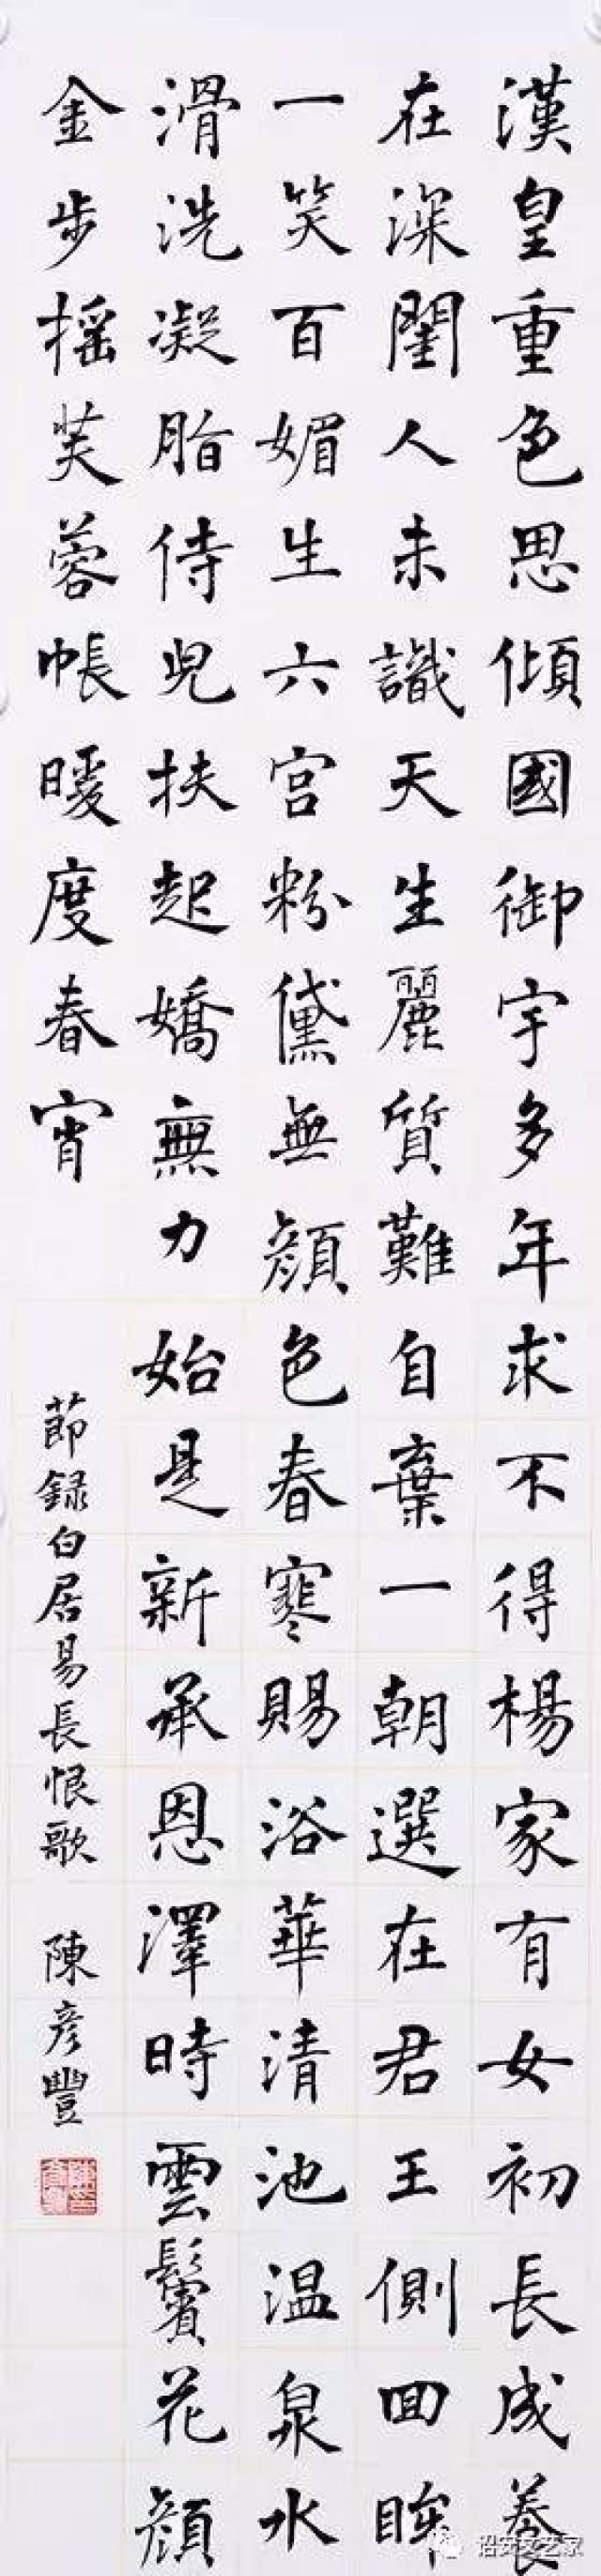 漢皇重色思傾國御宇多年求不得楊家有女初長成養
在深閨人未識天生麗質難自棄一朝選在君王側回眸
一笑百媚生六宮粉黛無顏色春寒賜浴華清池温泉水
滑洗凝脂侍兒扶起嬌無力始是新承恩澤時雲鬢花顏
金步摇芙蓉帳暖度春宵
節録白居易長恨歌 陳彦豐
诏安文艺家